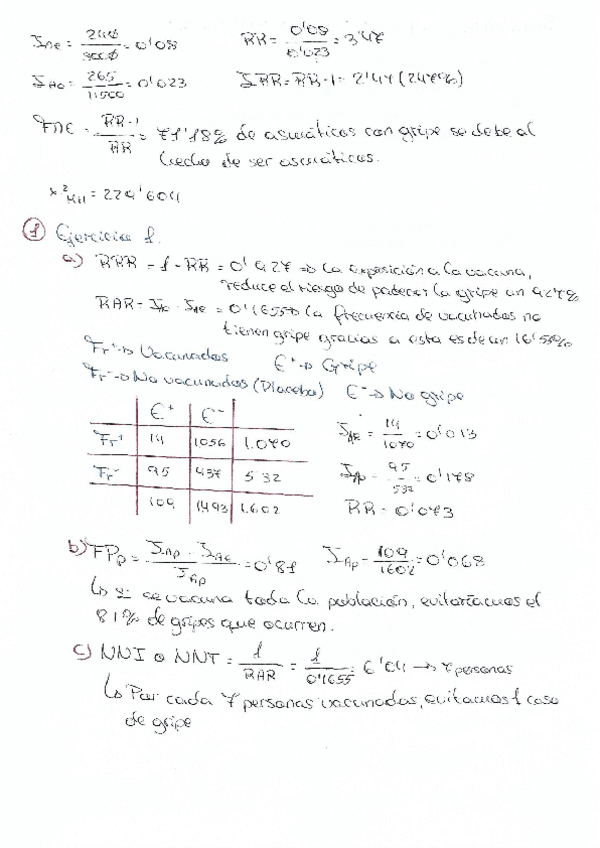 IAe = 240/3000 = 0'08 RR = 0'08/0'023 = 3'47
IAo = 265/11500 = 0'023 IRR = RR-1 = 2'47 (247%)
RR-1/RR = 71'18% de asmáticos con gripe se debe al
hecho de ser asmáticos.
x²MH = 229'604
① Ejercicio 1.
a) RRR = 1 - RR = 0'927 => La exposición a la vacuna,
reduce el riesgo de padecer la gripe un 927%
RAR = Io - IAe = 0'1655 → La frecuencia de vacunados no
tienen gripe gracias a esta es de un 16'55%
Fr+ → Vacunados E+ → Gripe
Fr- → No vacunados (Placebo) E- → No gripe
E+ E-
Fr+ 14 1056 1.070 IAE = 14/1070 = 0'013
Fr- 95 437 532 IAo = 95/532 = 0'178
109 1493 1.602 RR = 0'073
b) FPp = IAp - IAe / IAp = 0'81 IAp = 109/1602 = 0'068
↳ Si se vacuna toda la población, evitaríamos el
81% de gripes que ocurren.
c) NNI o NNT = 1/RAR = 1/0'1655 = 6'04 → 7 personas
↳ Por cada 7 personas vacunadas, evitamos 1 caso
de gripe